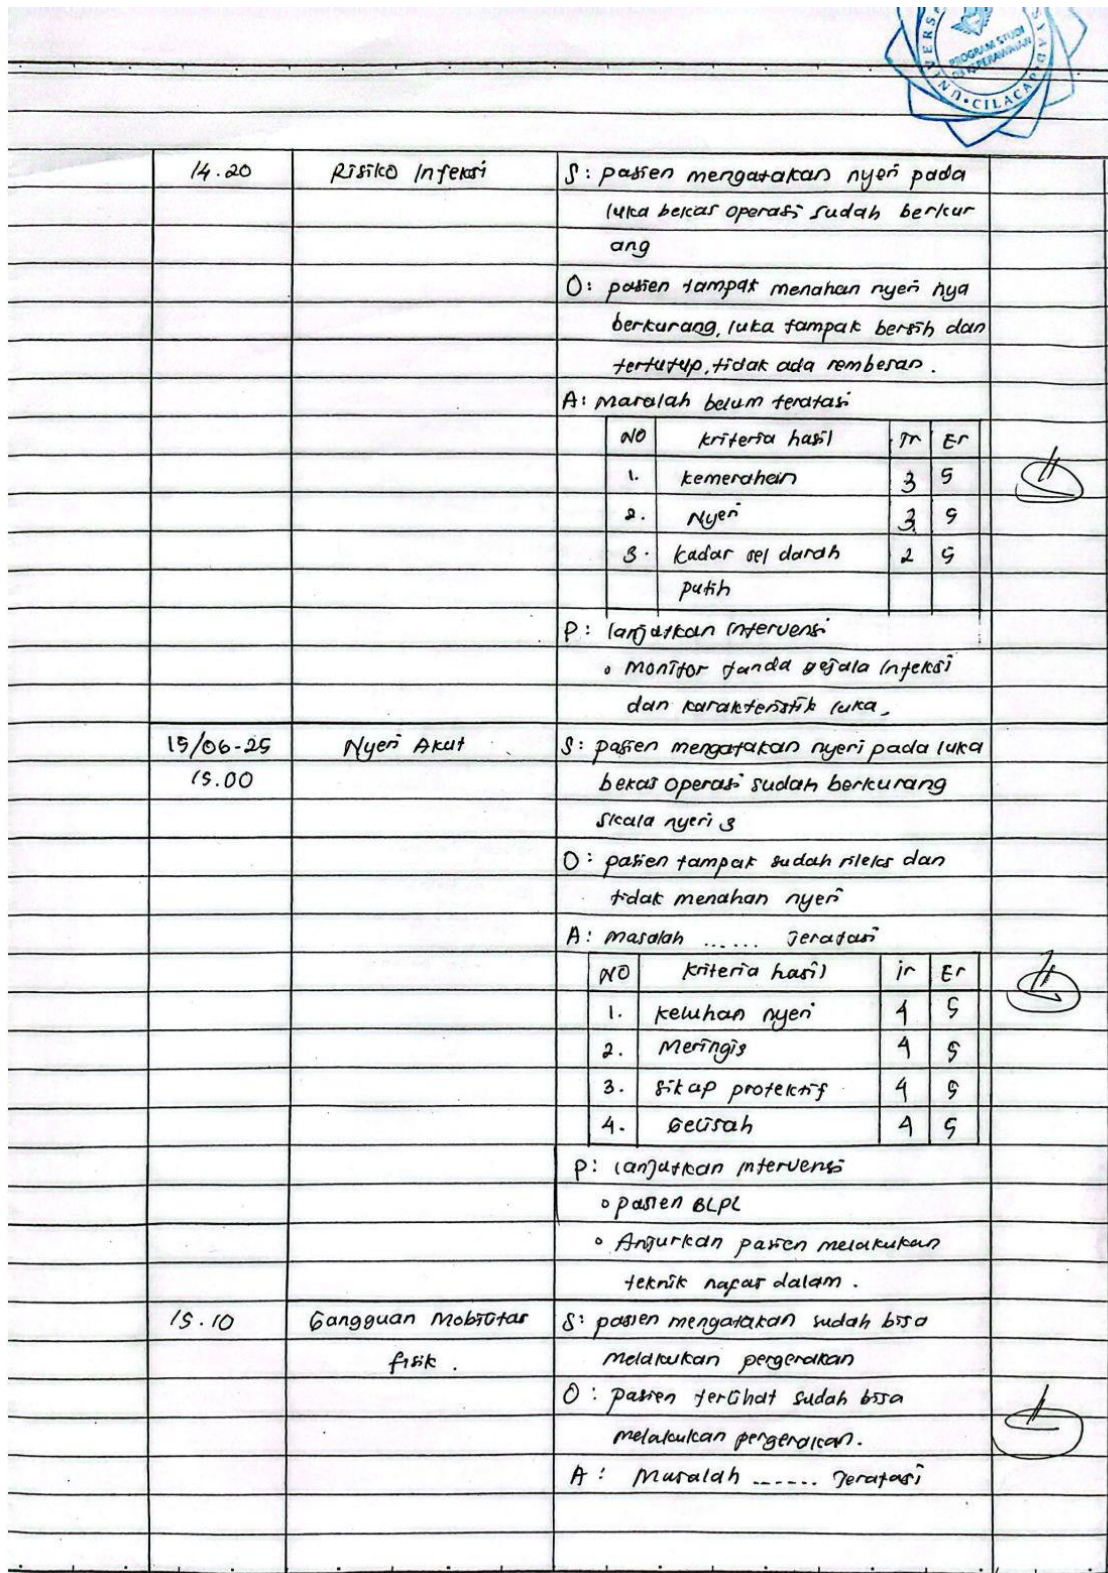 UNIVERS
PROGRAM STUDI
D3 KEPERAWATAN
CILACAP
14.20 Risiko Infeksi S: pasien mengatakan nyeri pada
luka bekas operasi sudah berkur
ang
O: pasien tampak menahan nyeri nya
berkurang, luka tampak bersih dan
tertutup, tidak ada rembesan.
A: Masalah belum teratasi
NO kriteria hasil Ir Er
1. kemerahan 3 5
2. Nyeri 3 5
3. kadar sel darah 2 5
putih
P: lanjutkan intervensi
• Monitor tanda gejala Infeksi
dan karakteristik luka.
15/06-25 Nyeri Akut S: pasien mengatakan nyeri pada luka
15.00 bekas operasi sudah berkurang
skala nyeri 3
O: pasien tampak sudah rileks dan
tidak menahan nyeri
A: Masalah ...... Teratasi
NO kriteria hasil ir Er
1. keluhan nyeri 4 5
2. Meringis 4 5
3. sikap protektif 4 5
4. Gelisah 4 5
P: lanjutkan intervensi
• pasien BLPL
• Anjurkan pasien melakukan
teknik nafas dalam.
15.10 Gangguan Mobilitas S: pasien mengatakan sudah bisa
fisik. melakukan pergerakan
O: Pasien terlihat sudah bisa
melakukan pergerakan.
A: Masalah ...... Teratasi